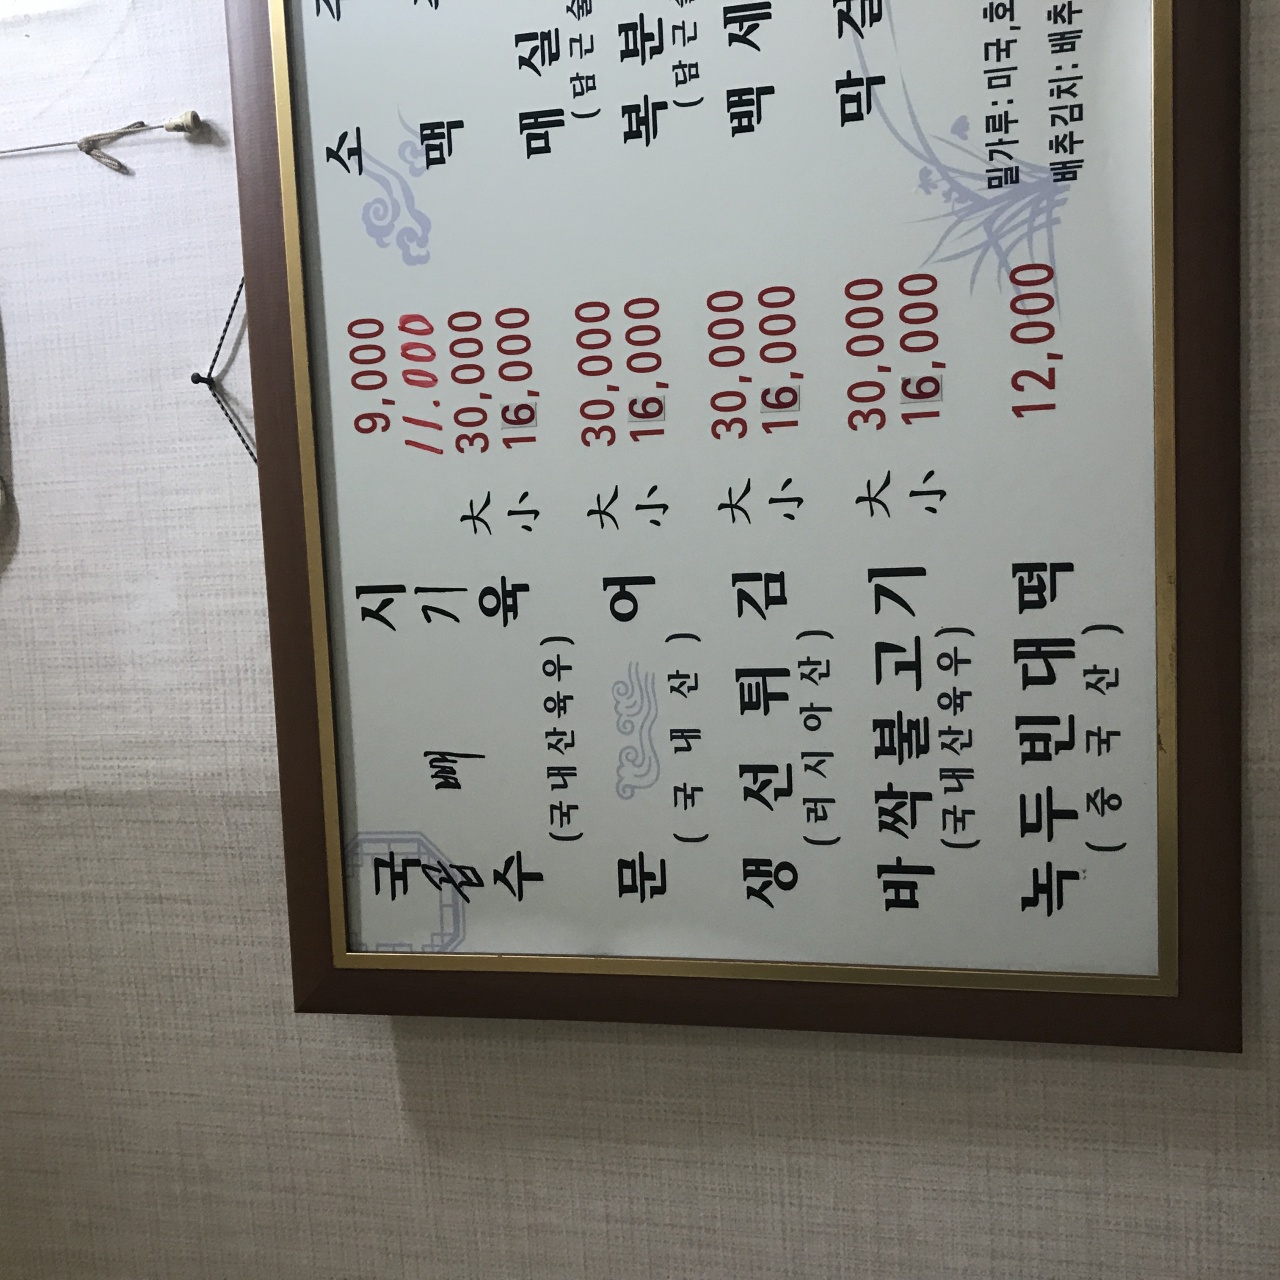 국 시 9,000
곱 빼 기 11.000
수 육 大 30,000
小 16,000
(국내산육우)
문 어 大 30,000
小 16,000
( 국 내 산 )
생 선 튀 김 大 30,000
小 16,000
( 러 시 아 산 )
바 싹 불 고 기 大 30,000
小 16,000
(국내산육우)
녹 두 빈 대 떡 12,000
( 중 국 산 )
소
맥
매 실
( 담 근 술
복 분
( 담 근
백 세
막 걸
밀가루: 미국,호
배추김치: 배추